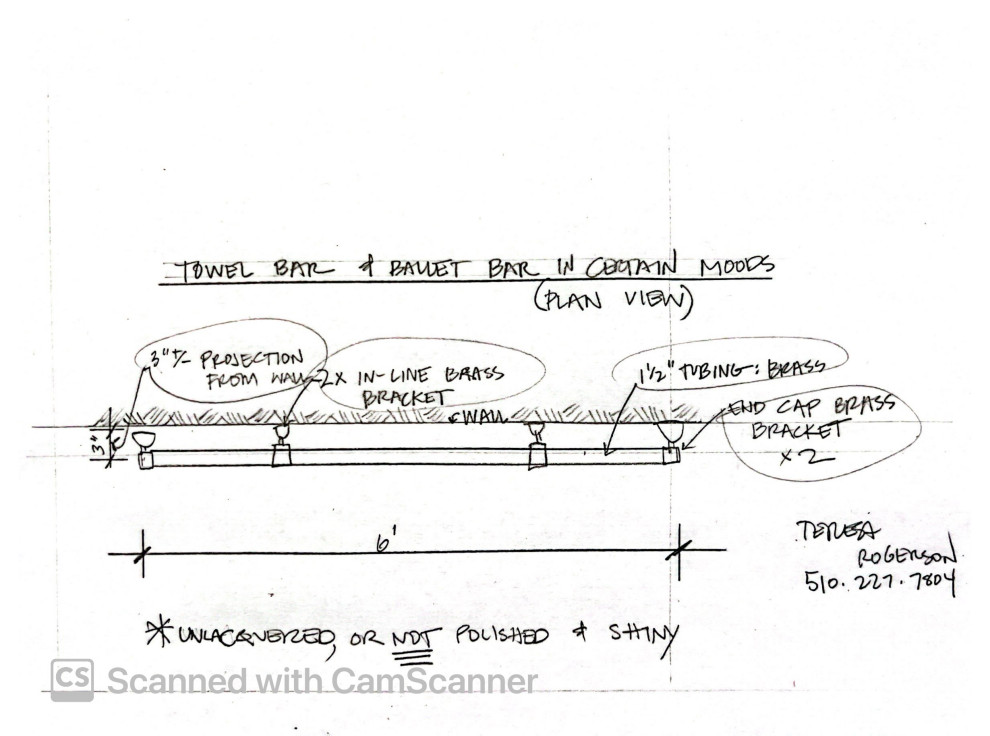 TOWEL BAR & BALLET BAR IN CERTAIN MOODS
(PLAN VIEW)
3" +/- PROJECTION
FROM WALL
2X IN-LINE BRASS
BRACKET
1 1/2" TUBING: BRASS
WALL
END CAP BRASS
BRACKET
X 2
3"
6'
TERESA
ROGERSON
510.227.7804
* UNLACQUERED, OR NOT POLISHED & SHINY
CS Scanned with CamScanner